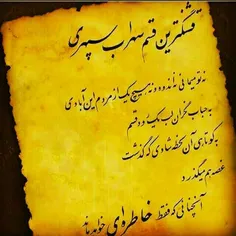 قشنگترین قسم سهراب سپهری
نه تو میمانی نه اندوه و نه هیچ یک از مردم این آبادی
به حباب نگران لب یک رود قسم
به کوتاهی آن لحظه شادی که گذشت
غصه هم میگذرد
آنچنانی که فقط خاطره‌ای خواهد ماند